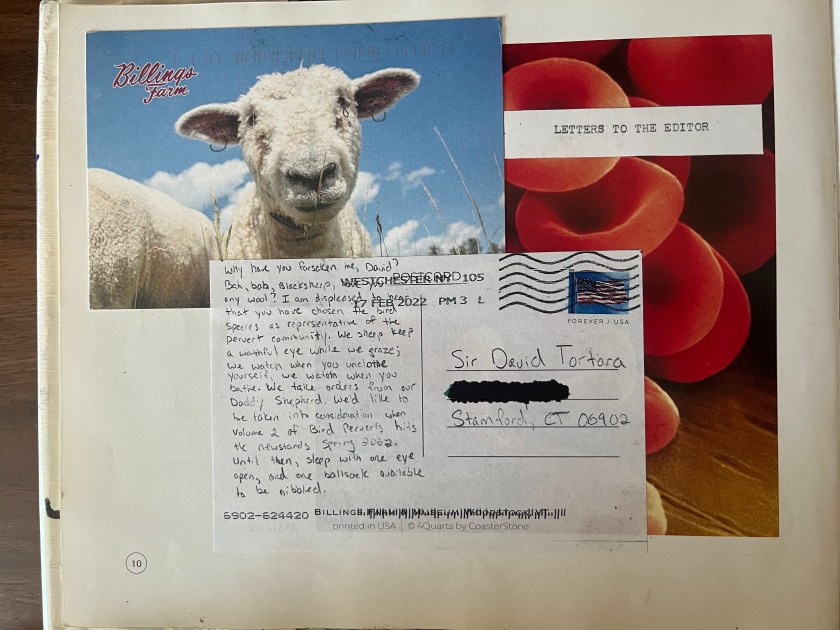 Billings
Farm
LETTERS TO THE EDITOR
Why have you forsaken me, David?
Bah, bah, blacksheep, have you
any wool? I am displeased to hear
that you have chosen the bird
species as representative of the
pervert community. We sheep keep
a watchful eye while we graze;
we watch when you unclothe
yourself, we watch when you
bathe. We take orders from our
Daddy Shepherd. We'd like to
be taken into consideration when
Volume 2 of Bird Perverts hits
the newsstands Spring 2022.
Until then, sleep with one eye
open, and one ballsack available
to be nibbled.
POSTCARD
WESTCHESTER NY 105
17 FEB 2022 PM 3 L
FOREVER / USA
Sir David Tortora
Stamford, CT 06902
6902-624420
BILLINGS FARM & MUSEUM
printed in USA | © 4Quarts by CoasterStone
10